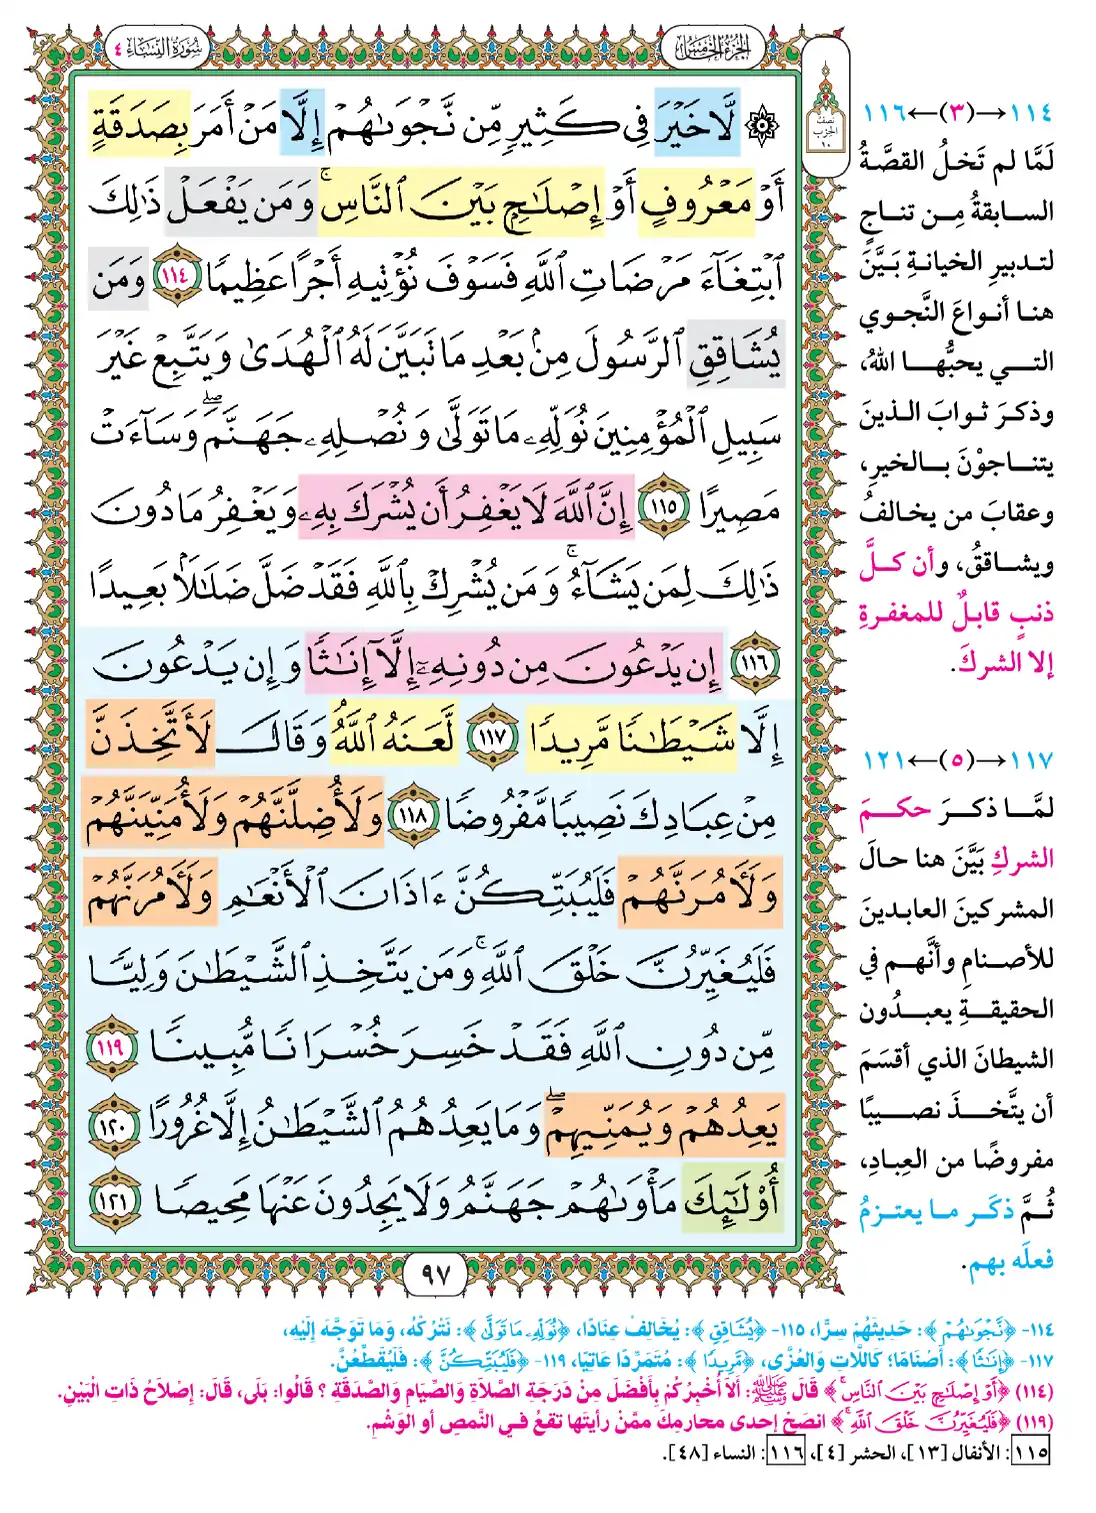 الجزء الخامس
سورة النساء ٤
نصف
الحزب
١٠
۞ لَّا خَيْرَ فِي كَثِيرٍ مِّن نَّجْوَىٰهُمْ إِلَّا مَنْ أَمَرَ بِصَدَقَةٍ
أَوْ مَعْرُوفٍ أَوْ إِصْلَٰحٍۭ بَيْنَ ٱلنَّاسِۚ وَمَن يَفْعَلْ ذَٰلِكَ
ٱبْتِغَآءَ مَرْضَاتِ ٱللَّهِ فَسَوْفَ نُؤْتِيهِ أَجْرًا عَظِيمًا ١١٤ وَمَن
يُشَاقِقِ ٱلرَّسُولَ مِنۢ بَعْدِ مَا تَبَيَّنَ لَهُ ٱلْهُدَىٰ وَيَتَّبِعْ غَيْرَ
سَبِيلِ ٱلْمُؤْمِنِينَ نُوَلِّهِۦ مَا تَوَلَّىٰ وَنُصْلِهِۦ جَهَنَّمَۖ وَسَآءَتْ
مَصِيرًا ١١٥ إِنَّ ٱللَّهَ لَا يَغْفِرُ أَن يُشْرَكَ بِهِۦ وَيَغْفِرُ مَا دُونَ
ذَٰلِكَ لِمَن يَشَآءُۚ وَمَن يُشْرِكْ بِٱللَّهِ فَقَدْ ضَلَّ ضَلَٰلًۢا بَعِيدًا
١١٦ إِن يَدْعُونَ مِن دُونِهِۦٓ إِلَّآ إِنَٰثًا وَإِن يَدْعُونَ
إِلَّا شَيْطَٰنًا مَّرِيدًا ١١٧ لَّعَنَهُ ٱللَّهُۘ وَقَالَ لَأَتَّخِذَنَّ
مِنْ عِبَادِكَ نَصِيبًا مَّفْرُوضًا ١١٨ وَلَأُضِلَّنَّهُمْ وَلَأُمَنِّيَنَّهُمْ
وَلَأٓمُرَنَّهُمْ فَلَيُبَتِّكُنَّ ءَاذَانَ ٱلْأَنْعَٰمِ وَلَأٓمُرَنَّهُمْ
فَلَيُغَيِّرُنَّ خَلْقَ ٱللَّهِۚ وَمَن يَتَّخِذِ ٱلشَّيْطَٰنَ وَلِيًّا
مِّن دُونِ ٱللَّهِ فَقَدْ خَسِرَ خُسْرَانًا مُّبِينًا ١١٩
يَعِدُهُمْ وَيُمَنِّيهِمْۖ وَمَا يَعِدُهُمُ ٱلشَّيْطَٰنُ إِلَّا غُرُورًا ١٢٠
أُو۟لَٰٓئِكَ مَأْوَىٰهُمْ جَهَنَّمُ وَلَا يَجِدُونَ عَنْهَا مَحِيصًا ١٢١
٩٧
١١٤→(٣)←١١٦
لَمَّا لم تَخلُ القصَّةُ
السابقةُ مِن تناجٍ
لتدبيرِ الخيانةِ بَيَّنَ
هنا أنواعَ النَّجوي
التي يحبُّها اللهُ،
وذكرَ ثوابَ الذينَ
يتناجوْنَ بالخيرِ،
وعقابَ من يخالفُ
ويشاققُ، وأن كلَّ
ذنبٍ قابلٌ للمغفرةِ
إلا الشركَ.
١١٧→(٥)←١٢١
لمَّا ذكرَ حكمَ
الشركِ بَيَّنَ هنا حالَ
المشركينَ العابدينَ
للأصنامِ وأنَّهم في
الحقيقةِ يعبدُون
الشيطانَ الذي أقسَمَ
أن يتَّخذَ نصيبًا
مفروضًا من العِبادِ،
ثُمَّ ذكَر ما يعتزمُ
فعلَه بهم.
١١٤- ﴿نَّجْوَىٰهُمْ﴾: حَدِيثَهُمْ سِرًّا، ١١٥- ﴿يُشَاقِقِ﴾: يُخَالِفْ عِنَادًا، ﴿نُوَلِّهِۦ مَا تَوَلَّىٰ﴾: نَتْرُكْهُ، وَمَا تَوَجَّهَ إِلَيْهِ،
١١٧- ﴿إِنَٰثًا﴾: أَصْنَامًا؛ كَاللَّاتِ وَالعُزَّى، ﴿مَّرِيدًا﴾: مُتَمَرِّدًا عَاتِيًا، ١١٩- ﴿فَلَيُبَتِّكُنَّ﴾: فَلَيُقَطِّعُنَّ.
(١١٤) ﴿أَوْ إِصْلَٰحٍۭ بَيْنَ ٱلنَّاسِۚ﴾ قَالَ ﷺ: أَلاَ أُخْبِرُكُمْ بِأَفْضَلَ مِنْ دَرَجَةِ الصَّلاَةِ وَالصِّيَامِ وَالصَّدَقَةِ ؟ قَالُوا: بَلَى، قَالَ: إِصْلاَحُ ذَاتِ الْبَيْنِ.
(١١٩) ﴿فَلَيُغَيِّرُنَّ خَلْقَ ٱللَّهِۚ﴾ انصَحْ إحدى محارمِكَ ممَّنْ رأيتَها تقعُ في النَّمصِ أو الوَشْمِ.
١١٥: الأنفال [١٣]، الحشر [٤]، ١١٦: النساء [٤٨].